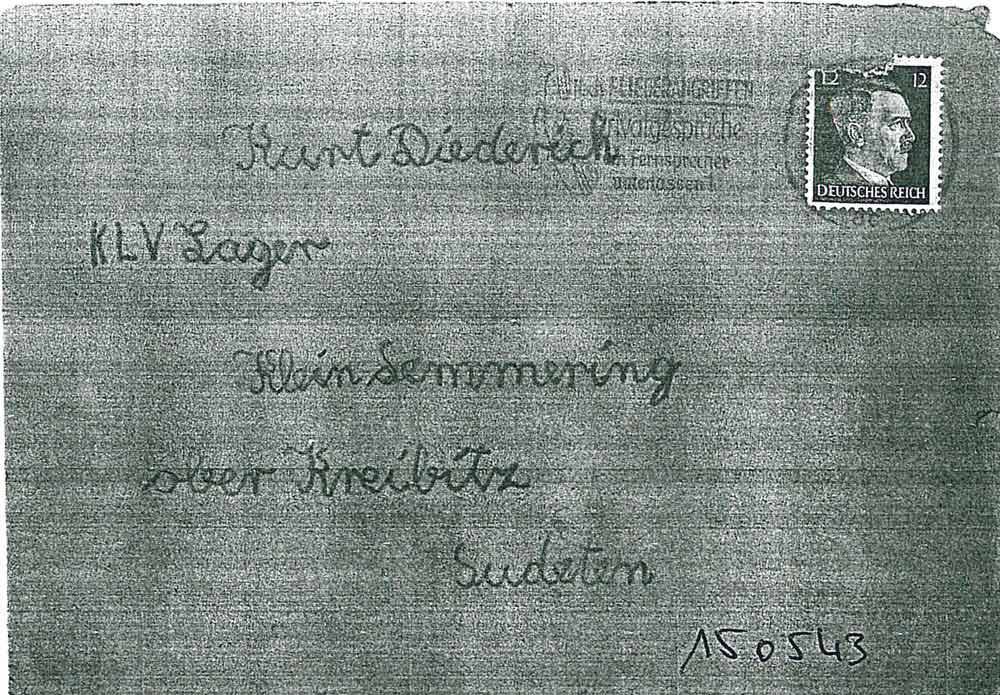 12 12
DEUTSCHES REICH
FLIEGERANGRIFFEN
Privatgespräche
Fernsprecher
unterlassen!
Kurt Diederich
KLV Lager
Klein Semmering
ober Kreibitz
Sudeten
150543